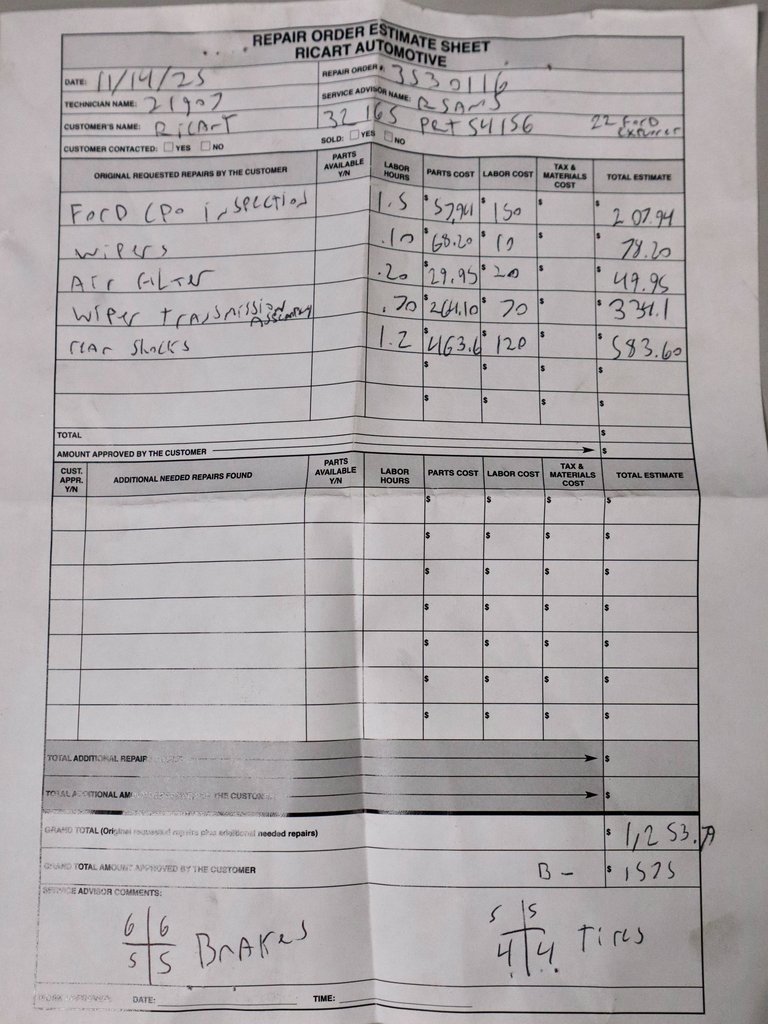 REPAIR ORDER ESTIMATE SHEET
RICART AUTOMOTIVE
DATE: 11/14/25 REPAIR ORDER #: 3530116
TECHNICIAN NAME: 21907 SERVICE ADVISOR NAME: RSAMS
CUSTOMER'S NAME: RicArT 32 165 PRT54156 22 Ford Explorer
CUSTOMER CONTACTED: YES NO SOLD: YES NO
ORIGINAL REQUESTED REPAIRS BY THE CUSTOMER PARTS AVAILABLE Y/N LABOR HOURS PARTS COST LABOR COST TAX & MATERIALS COST TOTAL ESTIMATE
Ford CPO inspection 1.5 $57.94 $150 $ $207.94
wipers .10 $68.20 $10 $ 78.20
Air Filter .20 $29.95 $20 $ $49.95
wiper transmission Assembly .70 $264.10 $70 $ $334.1
rear shocks 1.2 $463.6 $120 $ $583.60
$ $ $ $
$ $ $ $
TOTAL $
AMOUNT APPROVED BY THE CUSTOMER $
CUST. APPR. Y/N ADDITIONAL NEEDED REPAIRS FOUND PARTS AVAILABLE Y/N LABOR HOURS PARTS COST LABOR COST TAX & MATERIALS COST TOTAL ESTIMATE
$ $ $ $
$ $ $ $
$ $ $ $
$ $ $ $
$ $ $ $
$ $ $ $
$ $ $ $
TOTAL ADDITIONAL REPAIR $
TOTAL ADDITIONAL AM THE CUSTOM $
GRAND TOTAL (Original requested repairs plus additional needed repairs) $ 1,253.79
GRAND TOTAL AMOUNT APPROVED BY THE CUSTOMER B- $ 1575
SERVICE ADVISOR COMMENTS:
6 6 5 5
5 5 Brakes 4 4 tires
DATE: TIME: